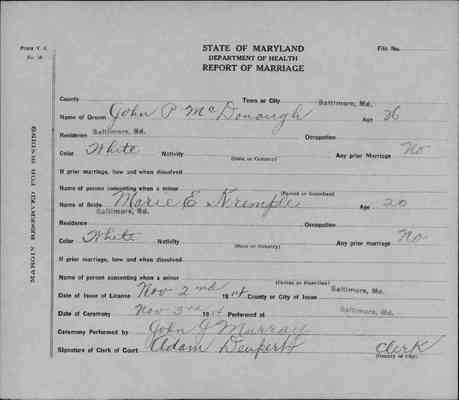 STATE OF MARYLAND
DEPARTMENT OF HEALTH
REPORT OF MARRIAGE
Form V. S.
File No.
MARGIN RESERVED FOR BINDING
County Town or City Baltimore, Md.
Name of Groom John P McDonough Age 26
Residence Baltimore, Md. Occupation
Color White Nativity (State or Country) Any prior Marriage No
If prior marriage, how and when dissolved
Name of person consenting when a minor (Parent or Guardian)
Name of Bride Marie E Kremple Age 20
Residence Baltimore, Md. Occupation
Color White Nativity (State or Country) Any prior marriage No
If prior marriage, how and when dissolved
Name of person consenting when a minor (Parent or Guardian)
Date of Issue of License Nov 2nd 1914 County or City of Issue Baltimore, Md.
Date of Ceremony Nov 3rd 1914 Performed at Baltimore, Md.
Ceremony Performed by John J Murray
Signature of Clerk of Court Adam Deupert Clerk
(County or City)